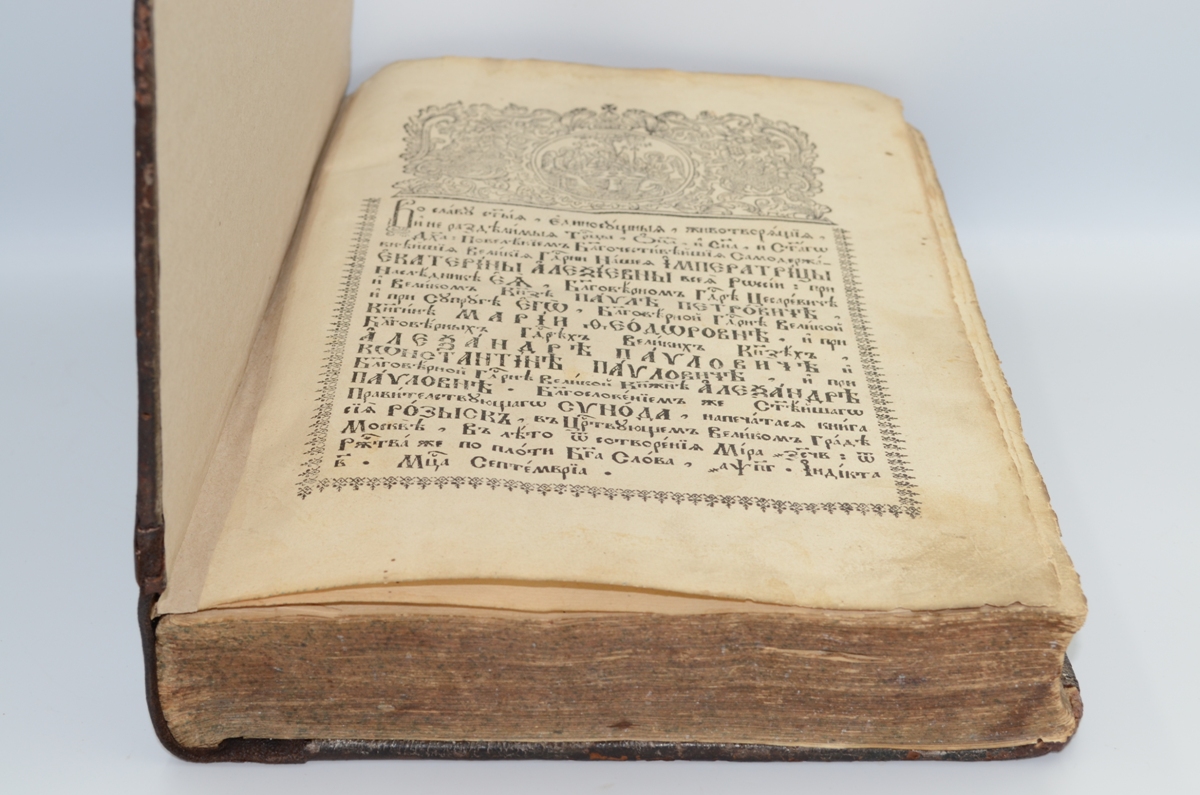 Во сла́вꙋ ст҃ы́ѧ, єдиносꙋ́щныѧ, животворѧ́щїѧ,
и҆ не раздѣли́мыѧ Трⷪ҇цы, Ѻ҆ц҃а̀, и҆ Сн҃а, и҆ Ст҃а́гѡ
Дх҃а: Повелѣ́нїемъ Бл҃гочести́вѣйшїѧ Самодержа́-
внѣйшїѧ Вели́кїѧ Гдⷭ҇рни На́шеѧ І҆МПЕРАТРИ́ЦЫ
ЕКАТЕРИ́НЫ А҆ЛЕѮІ́ЕВНЫ всеѧ̀ Рѡссі́и: при
Наслѣ́дникѣ Е҆Ѧ̀, Бл҃говѣ́рномъ Гдⷭ҇рѣ Цесаре́вичѣ
и҆ Вели́комъ Кнѧ́зѣ ПА́ѴЛѢ ПЕТРО́ВИЧѢ,
и҆ при Сꙋпрꙋ́гѣ Е҆ГѠ̀, Бл҃говѣ́рной Гдⷭ҇рнѣ Вели́кой
Кнѧги́нѣ МАРІ́И Ѳ҆ЕОДѠРОВНѢ, и҆ при
Бл҃говѣ́рныхъ Гдⷭ҇рѣхъ Вели́кихъ Кнѧзѣ́хъ,
А҆ЛЕѮА́НДРѢ ПА́ѴЛОВИЧѢ и҆
КѠНСТАНТІ́НѢ ПА́ѴЛОВИЧѢ и҆ при
Бл҃говѣ́рной Гдⷭ҇рнѣ Вели́кой Кнѧжнѣ̀ А҆ЛЕѮА́НДРѢ
ПА́ѴЛОВНѢ. Бл҃гослове́нїемъ же Ст҃ѣ́йшагѡ
Прави́телствꙋющагѡ СѴНО́ДА, напеча́тасѧ кни́га
сїѧ̀ РО́ЗЫСКЪ, въ Црⷭ҇твꙋющемъ Вели́комъ Гра́дѣ
Москвѣ̀, Въ лѣ́то ѿ сотворе́нїѧ Мі́ра ҂зс҃чв: ѿ
Ржⷭ҇тва́ же по пло́ти Бг҃а Сло́ва, ҂аѱ҃пг. І҆нді́кта
в҃. Мцⷭ҇а Септе́мврїа.